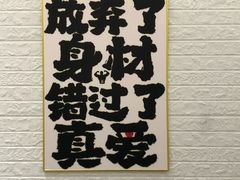 放弃了
身材
错过了
真爱